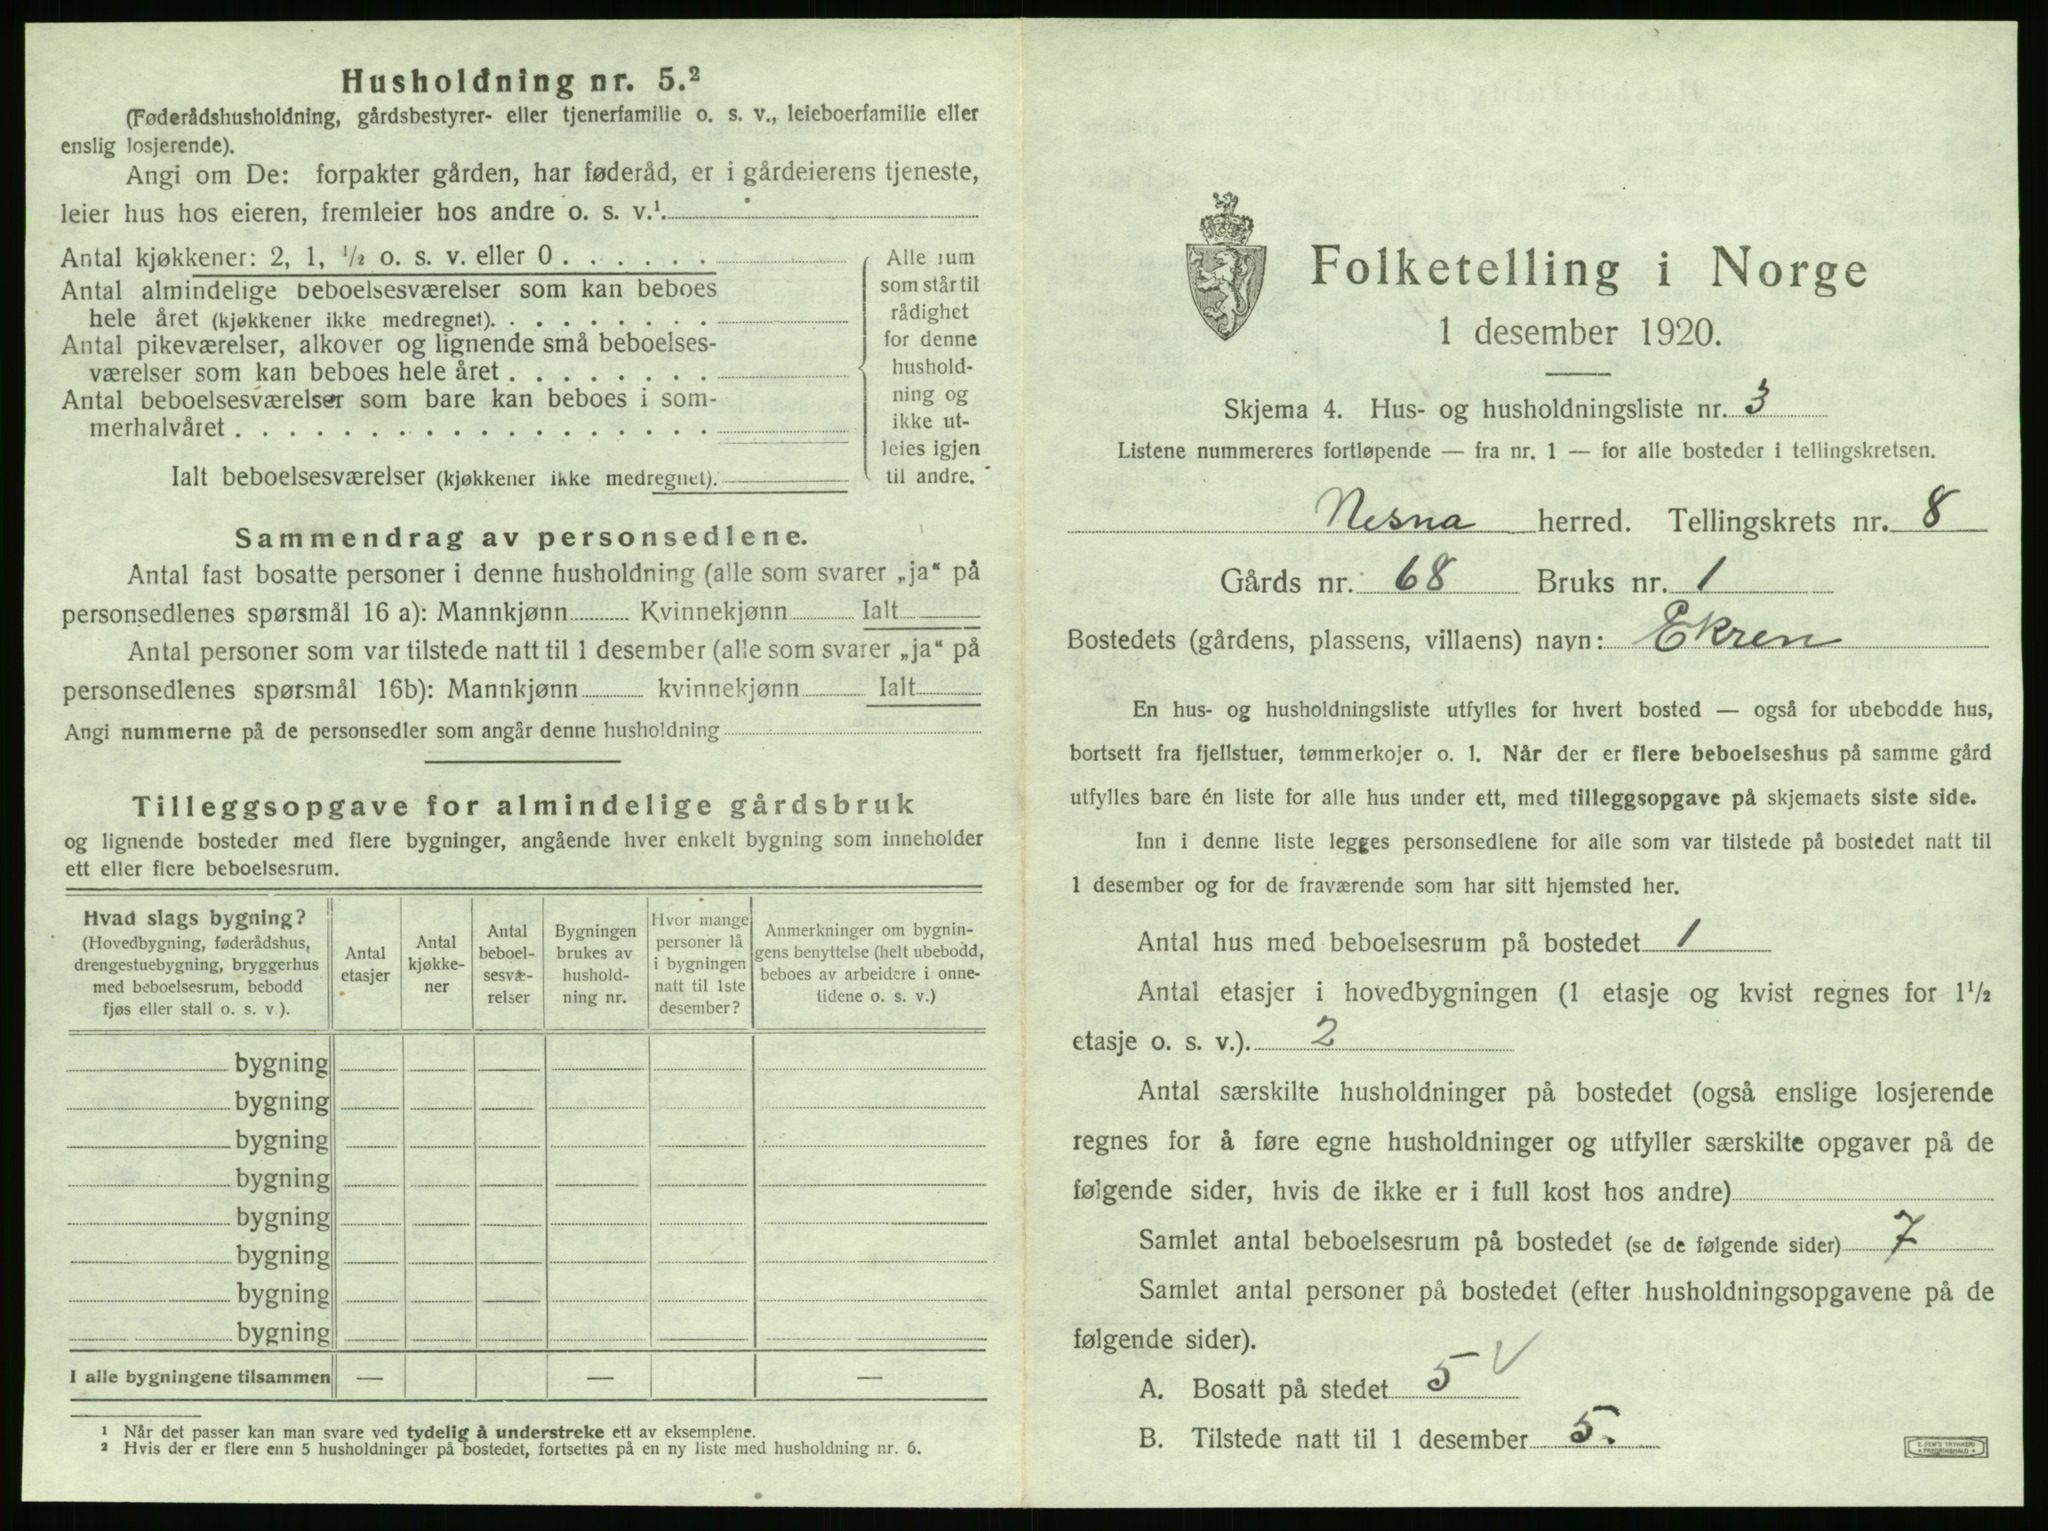 Husholdning nr. 5.²
(Føderådshusholdning, gårdsbestyrer- eller tjenerfamilie o. s. v., leieboerfamilie eller
enslig losjerende).
Angi om De: forpakter gården, har føderåd, er i gårdeierens tjeneste,
leier hus hos eieren, fremleier hos andre o. s. v.¹
Antal kjøkkener: 2, 1, ½ o. s. v. eller 0 . . . . . .
Antal almindelige beboelsesværelser som kan beboes
hele året (kjøkkener ikke medregnet). . . . . . . . .
Antal pikeværelser, alkover og lignende små beboelses-
værelser som kan beboes hele året . . . . . . . .
Antal beboelsesværelser som bare kan beboes i som-
merhalvåret . . . . . . . . . . . . . . . . . .
Ialt beboelsesværelser (kjøkkener ikke medregnet).
Alle rum
som står til
rådighet
for denne
hushold-
ning og
ikke ut-
leies igjen
til andre.
Sammendrag av personsedlene.
Antal fast bosatte personer i denne husholdning (alle som svarer „ja“ på
personsedlenes spørsmål 16 a): Mannkjønn Kvinnekjønn Ialt
Antal personer som var tilstede natt til 1 desember (alle som svarer „ja“ på
personsedlenes spørsmål 16b): Mannkjønn kvinnekjønn Ialt
Angi nummerne på de personsedler som angår denne husholdning
Tilleggsopgave for almindelige gårdsbruk
og lignende bosteder med flere bygninger, angående hver enkelt bygning som inneholder
ett eller flere beboelsesrum.
Hvad slags bygning?
(Hovedbygning, føderådshus,
drengestuebygning, bryggerhus
med beboelsesrum, bebodd
fjøs eller stall o. s. v.).
Antal
etasjer
Antal
kjøkke-
ner
Antal
beboel-
sesvæ-
relser
Bygningen
brukes av
hushold-
ning nr.
Hvor mange
personer lå
i bygningen
natt til 1ste
desember?
Anmerkninger om bygnin-
gens benyttelse (helt ubebodd,
beboes av arbeidere i onne-
tidene o. s. v.)
bygning
bygning
bygning
bygning
bygning
bygning
bygning
bygning
I alle bygningene tilsammen — — —
¹ Når det passer kan man svare ved tydelig å understreke ett av eksemplene.
² Hvis der er flere enn 5 husholdninger på bostedet, fortsettes på en ny liste med husholdning nr. 6.
Folketelling i Norge
1 desember 1920.
Skjema 4. Hus- og husholdningsliste nr. 3
Listene nummereres fortløpende — fra nr. 1 — for alle bosteder i tellingskretsen.
Nesna herred. Tellingskrets nr. 8
Gårds nr. 68 Bruks nr. 1
Bostedets (gårdens, plassens, villaens) navn: Ekren
En hus- og husholdningsliste utfylles for hvert bosted — også for ubebodde hus,
bortsett fra fjellstuer, tømmerkojer o. l. Når der er flere beboelseshus på samme gård
utfylles bare én liste for alle hus under ett, med tilleggsopgave på skjemaets siste side.
Inn i denne liste legges personsedlene for alle som var tilstede på bostedet natt til
1 desember og for de fraværende som har sitt hjemsted her.
Antal hus med beboelsesrum på bostedet 1
Antal etasjer i hovedbygningen (1 etasje og kvist regnes for 1½
etasje o. s. v.). 2
Antal særskilte husholdninger på bostedet (også enslige losjerende
regnes for å føre egne husholdninger og utfyller særskilte opgaver på de
følgende sider, hvis de ikke er i full kost hos andre)
Samlet antal beboelsesrum på bostedet (se de følgende sider) 7
Samlet antal personer på bostedet (efter husholdningsopgavene på de
følgende sider).
A. Bosatt på stedet 5 V
B. Tilstede natt til 1 desember 5.